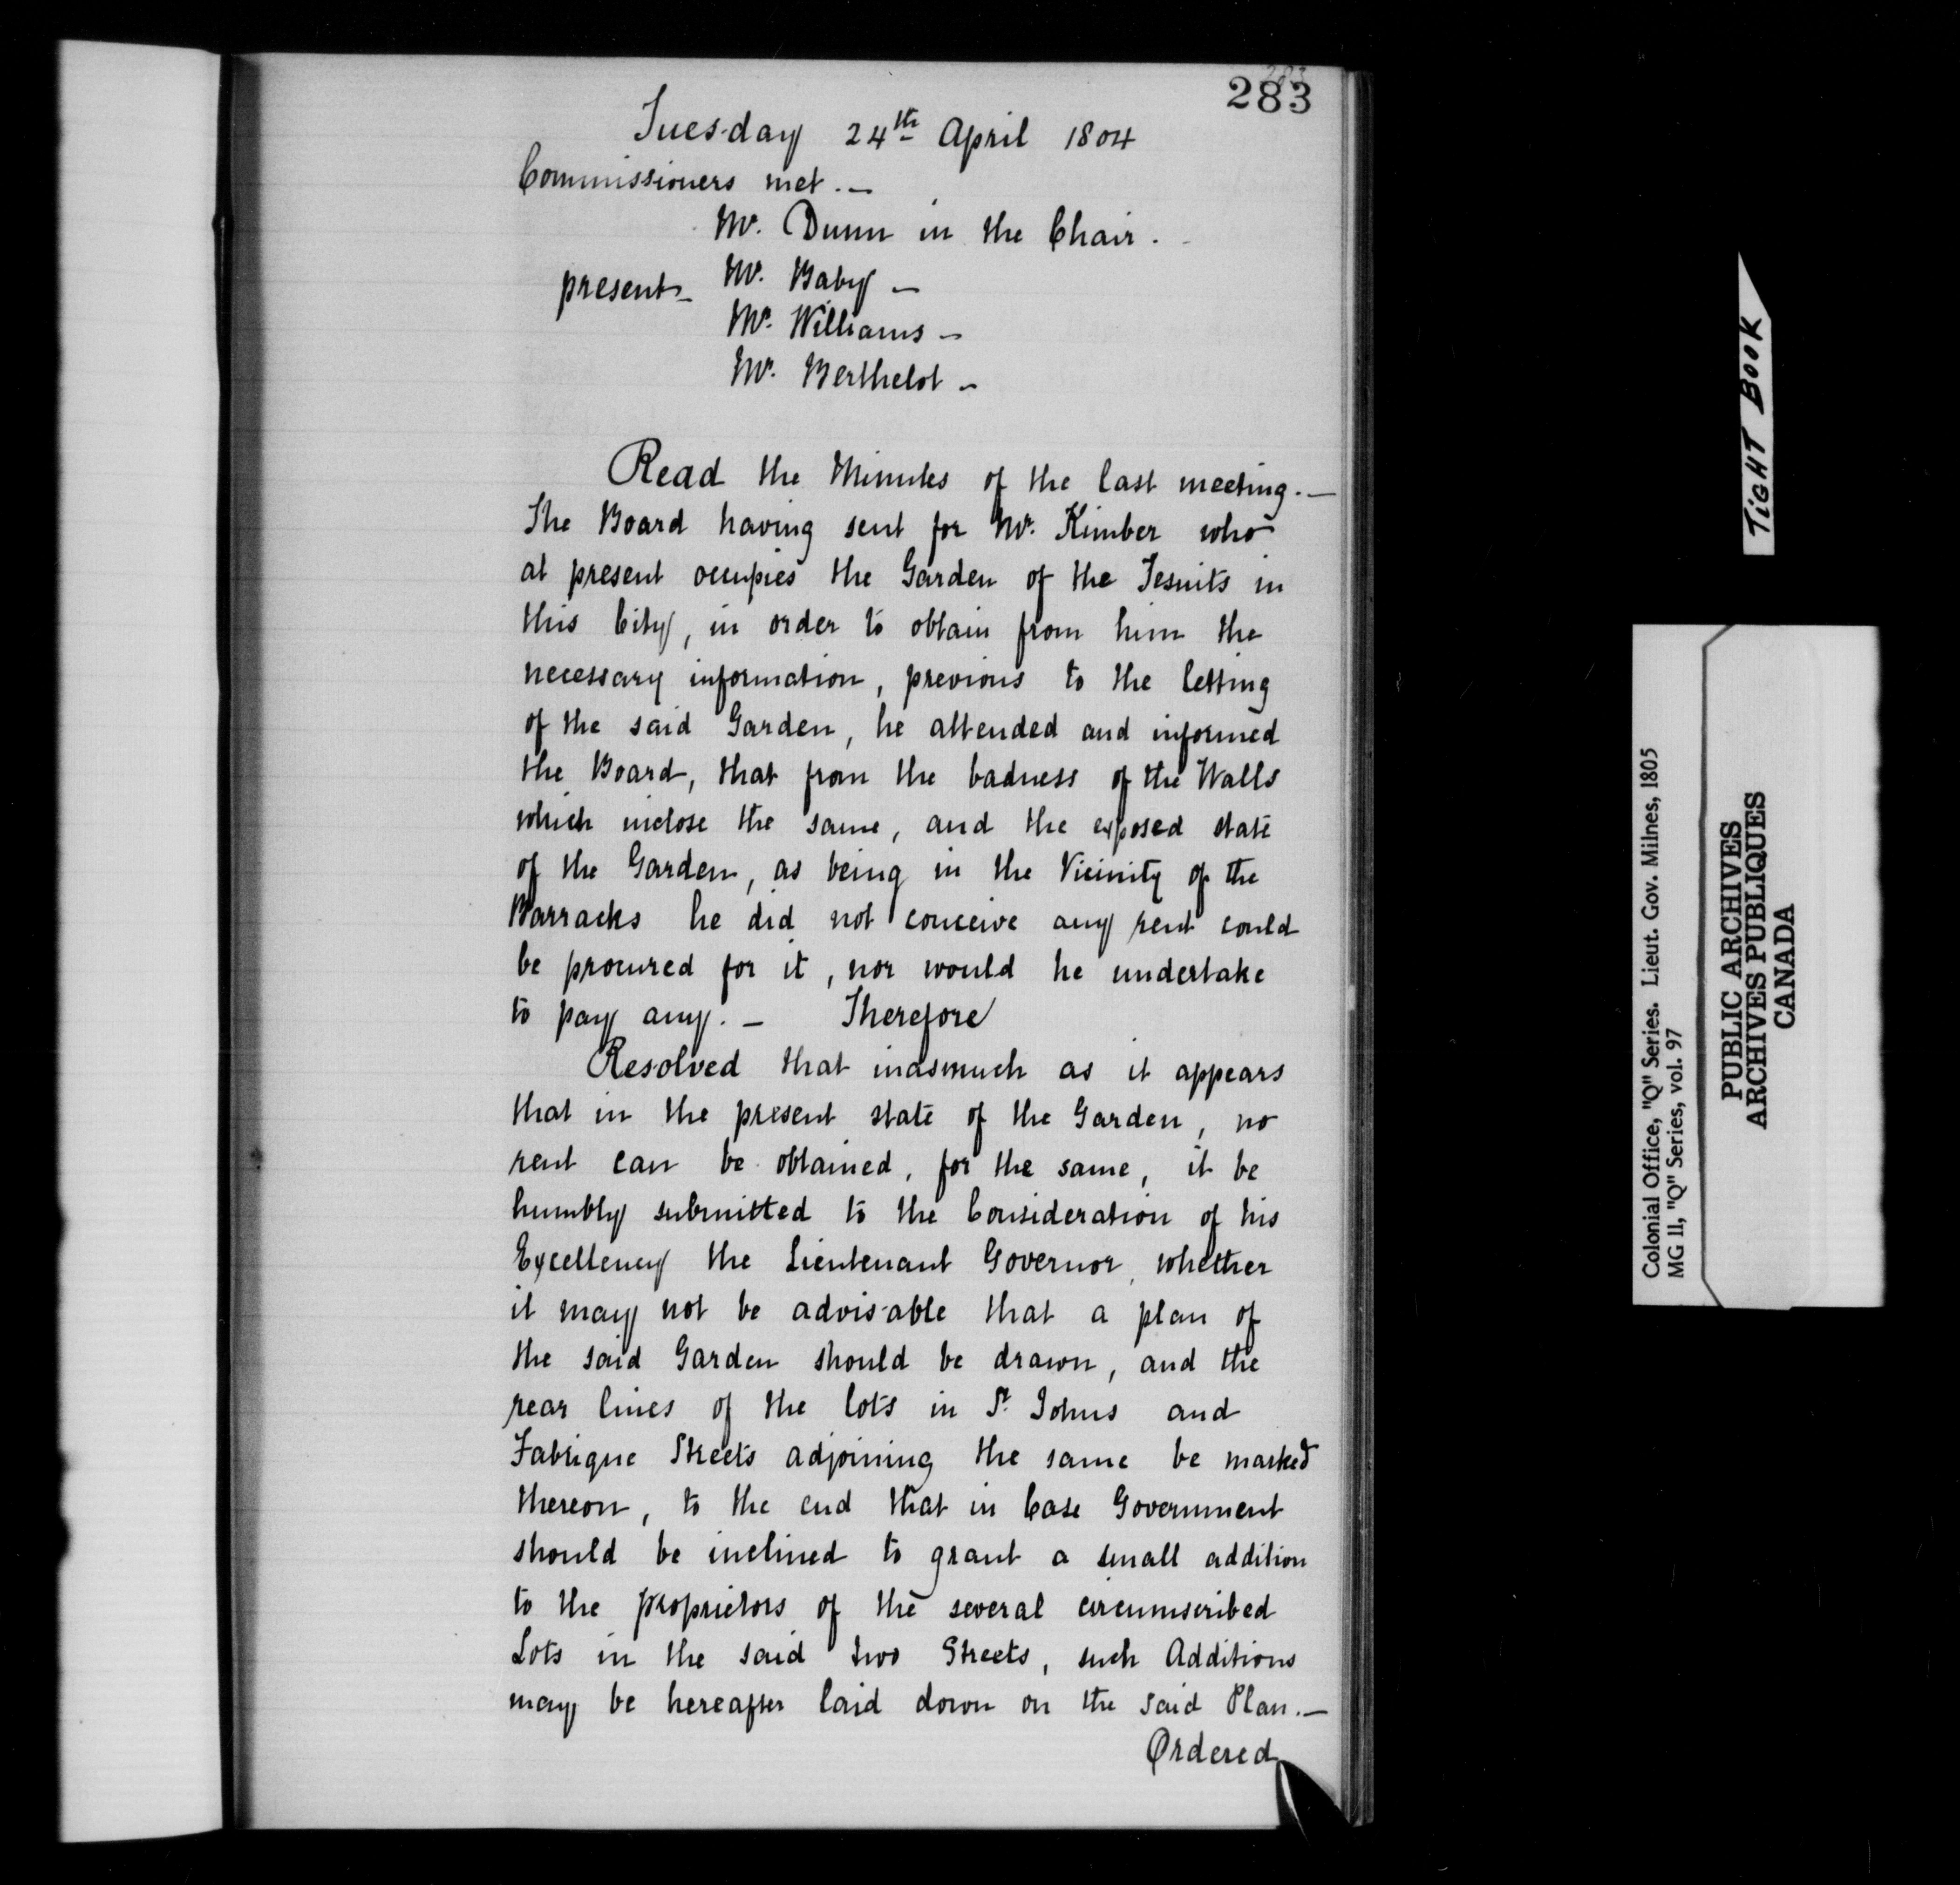 283
283
Tuesday 24th April 1804
Commissioners met.—
Mr. Dunn in the Chair.
present— Mr. Baby —
Mr. Williams —
Mr. Berthelot —
Read the Minutes of the last meeting.—
The Board having sent for Mr. Kimber who
at present occupies the Garden of the Jesuits in
this City, in order to obtain from him the
necessary information, previous to the letting
of the said Garden, he attended and informed
the Board, that from the badness of the Walls
which inclose the same, and the exposed state
of the Garden, as being in the Vicinity of the
Barracks he did not conceive any rent could
be procured for it, nor would he undertake
to pay any. — Therefore
Resolved that inasmuch as it appears
that in the present state of the Garden, no
rent can be obtained, for the same, it be
humbly submitted to the Consideration of his
Excellency the Lieutenant Governor, whether
it may not be advisable that a plan of
the said Garden should be drawn, and the
rear lines of the lots in St. Johns and
Fabrique Streets adjoining the same be marked
thereon, to the end that in Case Government
should be inclined to grant a small addition
to the proprietors of the several circumscribed
Lots in the said two Streets, such Additions
may be hereafter laid down on the said Plan.—
Ordered
TIGHT BOOK
Colonial Office, "Q" Series. Lieut. Gov. Milnes, 1805
MG 11, "Q" Series, vol. 97
PUBLIC ARCHIVES
ARCHIVES PUBLIQUES
CANADA